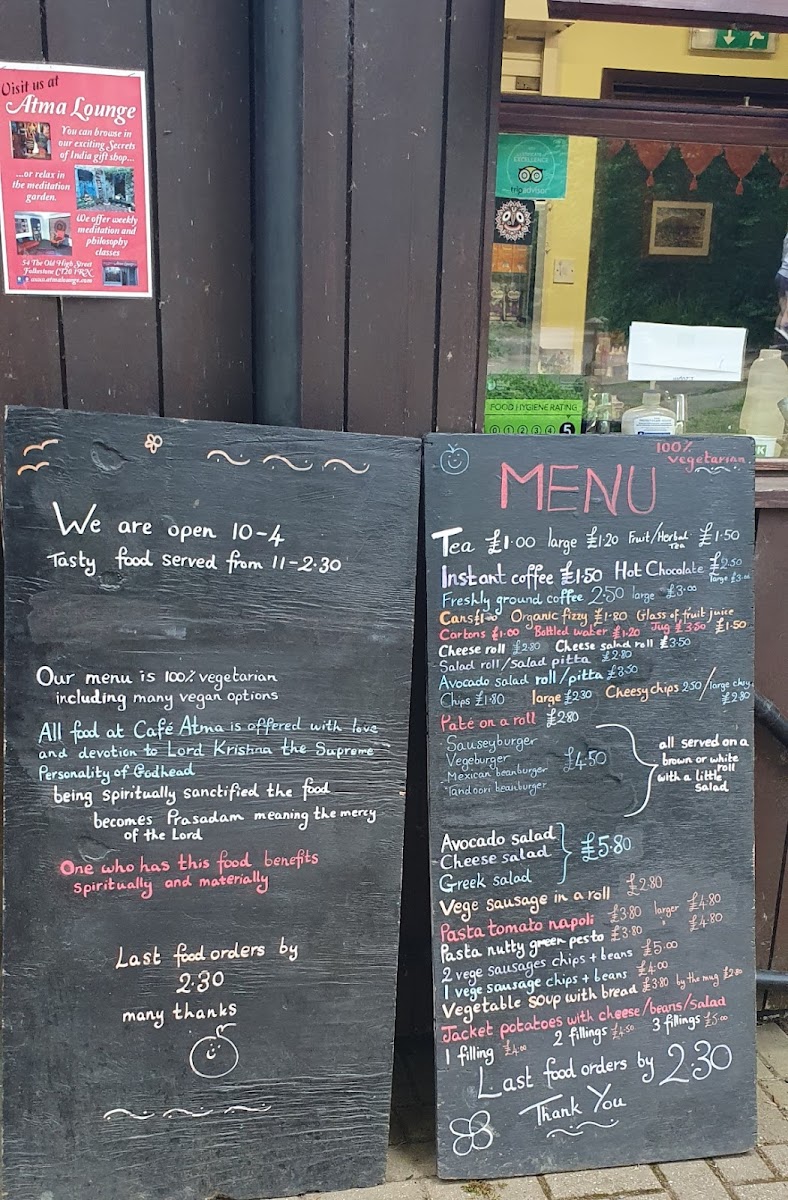 Visit us at
Atma Lounge
You can browse in
our exciting Secrets
of India gift shop...
...or relax in
the meditation
garden.
We offer weekly
meditation and
philosophy
classes
54 The Old High Street
Folkestone CT20 1RN
www.atmalounge.com
EXCELLENCE
tripadvisor
FOOD HYGIENE RATING
0 1 2 3 4 5
We are open 10-4
Tasty food served from 11-2.30
Our menu is 100% vegetarian
including many vegan options
All food at Café Atma is offered with love
and devotion to Lord Krishna the Supreme
Personality of Godhead
being spiritually sanctified the food
becomes Prasadam meaning the mercy
of the Lord
One who has this food benefits
spiritually and materially
Last food orders by
2.30
many thanks
100%
vegetarian
MENU
Tea £1.00 large £1.20 Fruit/Herbal Tea £1.50
Instant coffee £1.50 Hot Chocolate £2.50
large £3.00
Freshly ground coffee 2.50 large £3.00
Cans £1.00 Organic fizzy £1.80 Glass of fruit juice £1.50
Cartons £1.00 Bottled water £1.20 Jug £3.50
Cheese roll £2.80 Cheese salad roll £3.50
Salad roll/salad pitta £2.80
Avocado salad roll/pitta £3.50
Chips £1.80 large £2.30 Cheesy chips 2.50/large chsy £2.80
Pate on a roll £2.80
Sauseyburger
Vegeburger
Mexican beanburger
Tandoori beanburger
£4.50
all served on a
brown or white
roll
with a little
salad
Avocado salad
Cheese salad
Greek salad
£5.80
Vege sausage in a roll £2.80
Pasta tomato napoli £3.80 larger £4.80
Pasta nutty green pesto £3.80 " £4.80
2 vege sausages chips + beans £5.00
1 vege sausage chips + beans £4.00
Vegetable soup with bread £3.80 by the mug £2.80
Jacket potatoes with cheese/beans/salad
1 filling £4.00 2 fillings £4.50 3 fillings £5.00
Last food orders by 2.30
Thank You